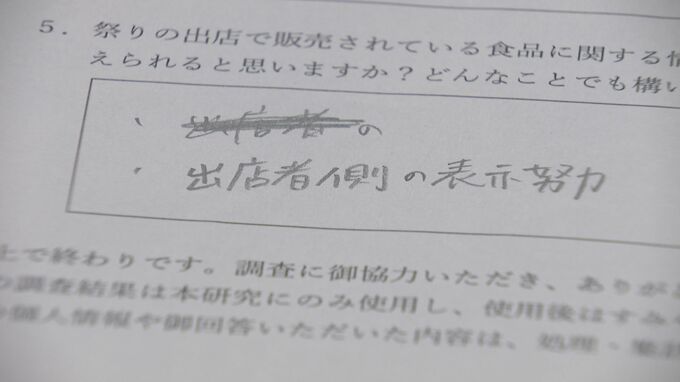 5. 祭りの出店で販売されている食品に関する情
えられると思いますか?どんなことでも構い
・ 出店者の
・ 出店者側の表示努力
上で終わりです。調査に御協力いただき、ありが
調査結果は本研究にのみ使用し、使用後はすみ
個人情報や御回答いただいた内容は、処理・